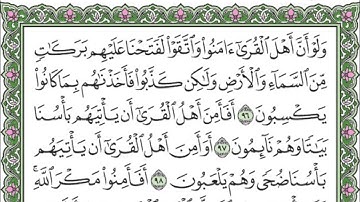 وَلَوۡ أَنَّ أَهۡلَ ٱلۡقُرَىٰٓ ءَامَنُواْ وَٱتَّقَوۡاْ لَفَتَحۡنَا عَلَيۡهِم بَرَكَٰتٖ
مِّنَ ٱلسَّمَآءِ وَٱلۡأَرۡضِ وَلَٰكِن كَذَّبُواْ فَأَخَذۡنَٰهُم بِمَا كَانُواْ
يَكۡسِبُونَ ٩٦ أَفَأَمِنَ أَهۡلُ ٱلۡقُرَىٰٓ أَن يَأۡتِيَهُم بَأۡسُنَا
بَيَٰتٗا وَهُمۡ نَآئِمُونَ ٩٧ أَوَأَمِنَ أَهۡلُ ٱلۡقُرَىٰٓ أَن يَأۡتِيَهُم
بَأۡسُنَا ضُحٗى وَهُمۡ يَلۡعَبُونَ ٩٨ أَفَأَمِنُواْ مَكۡرَ ٱللَّهِۚ